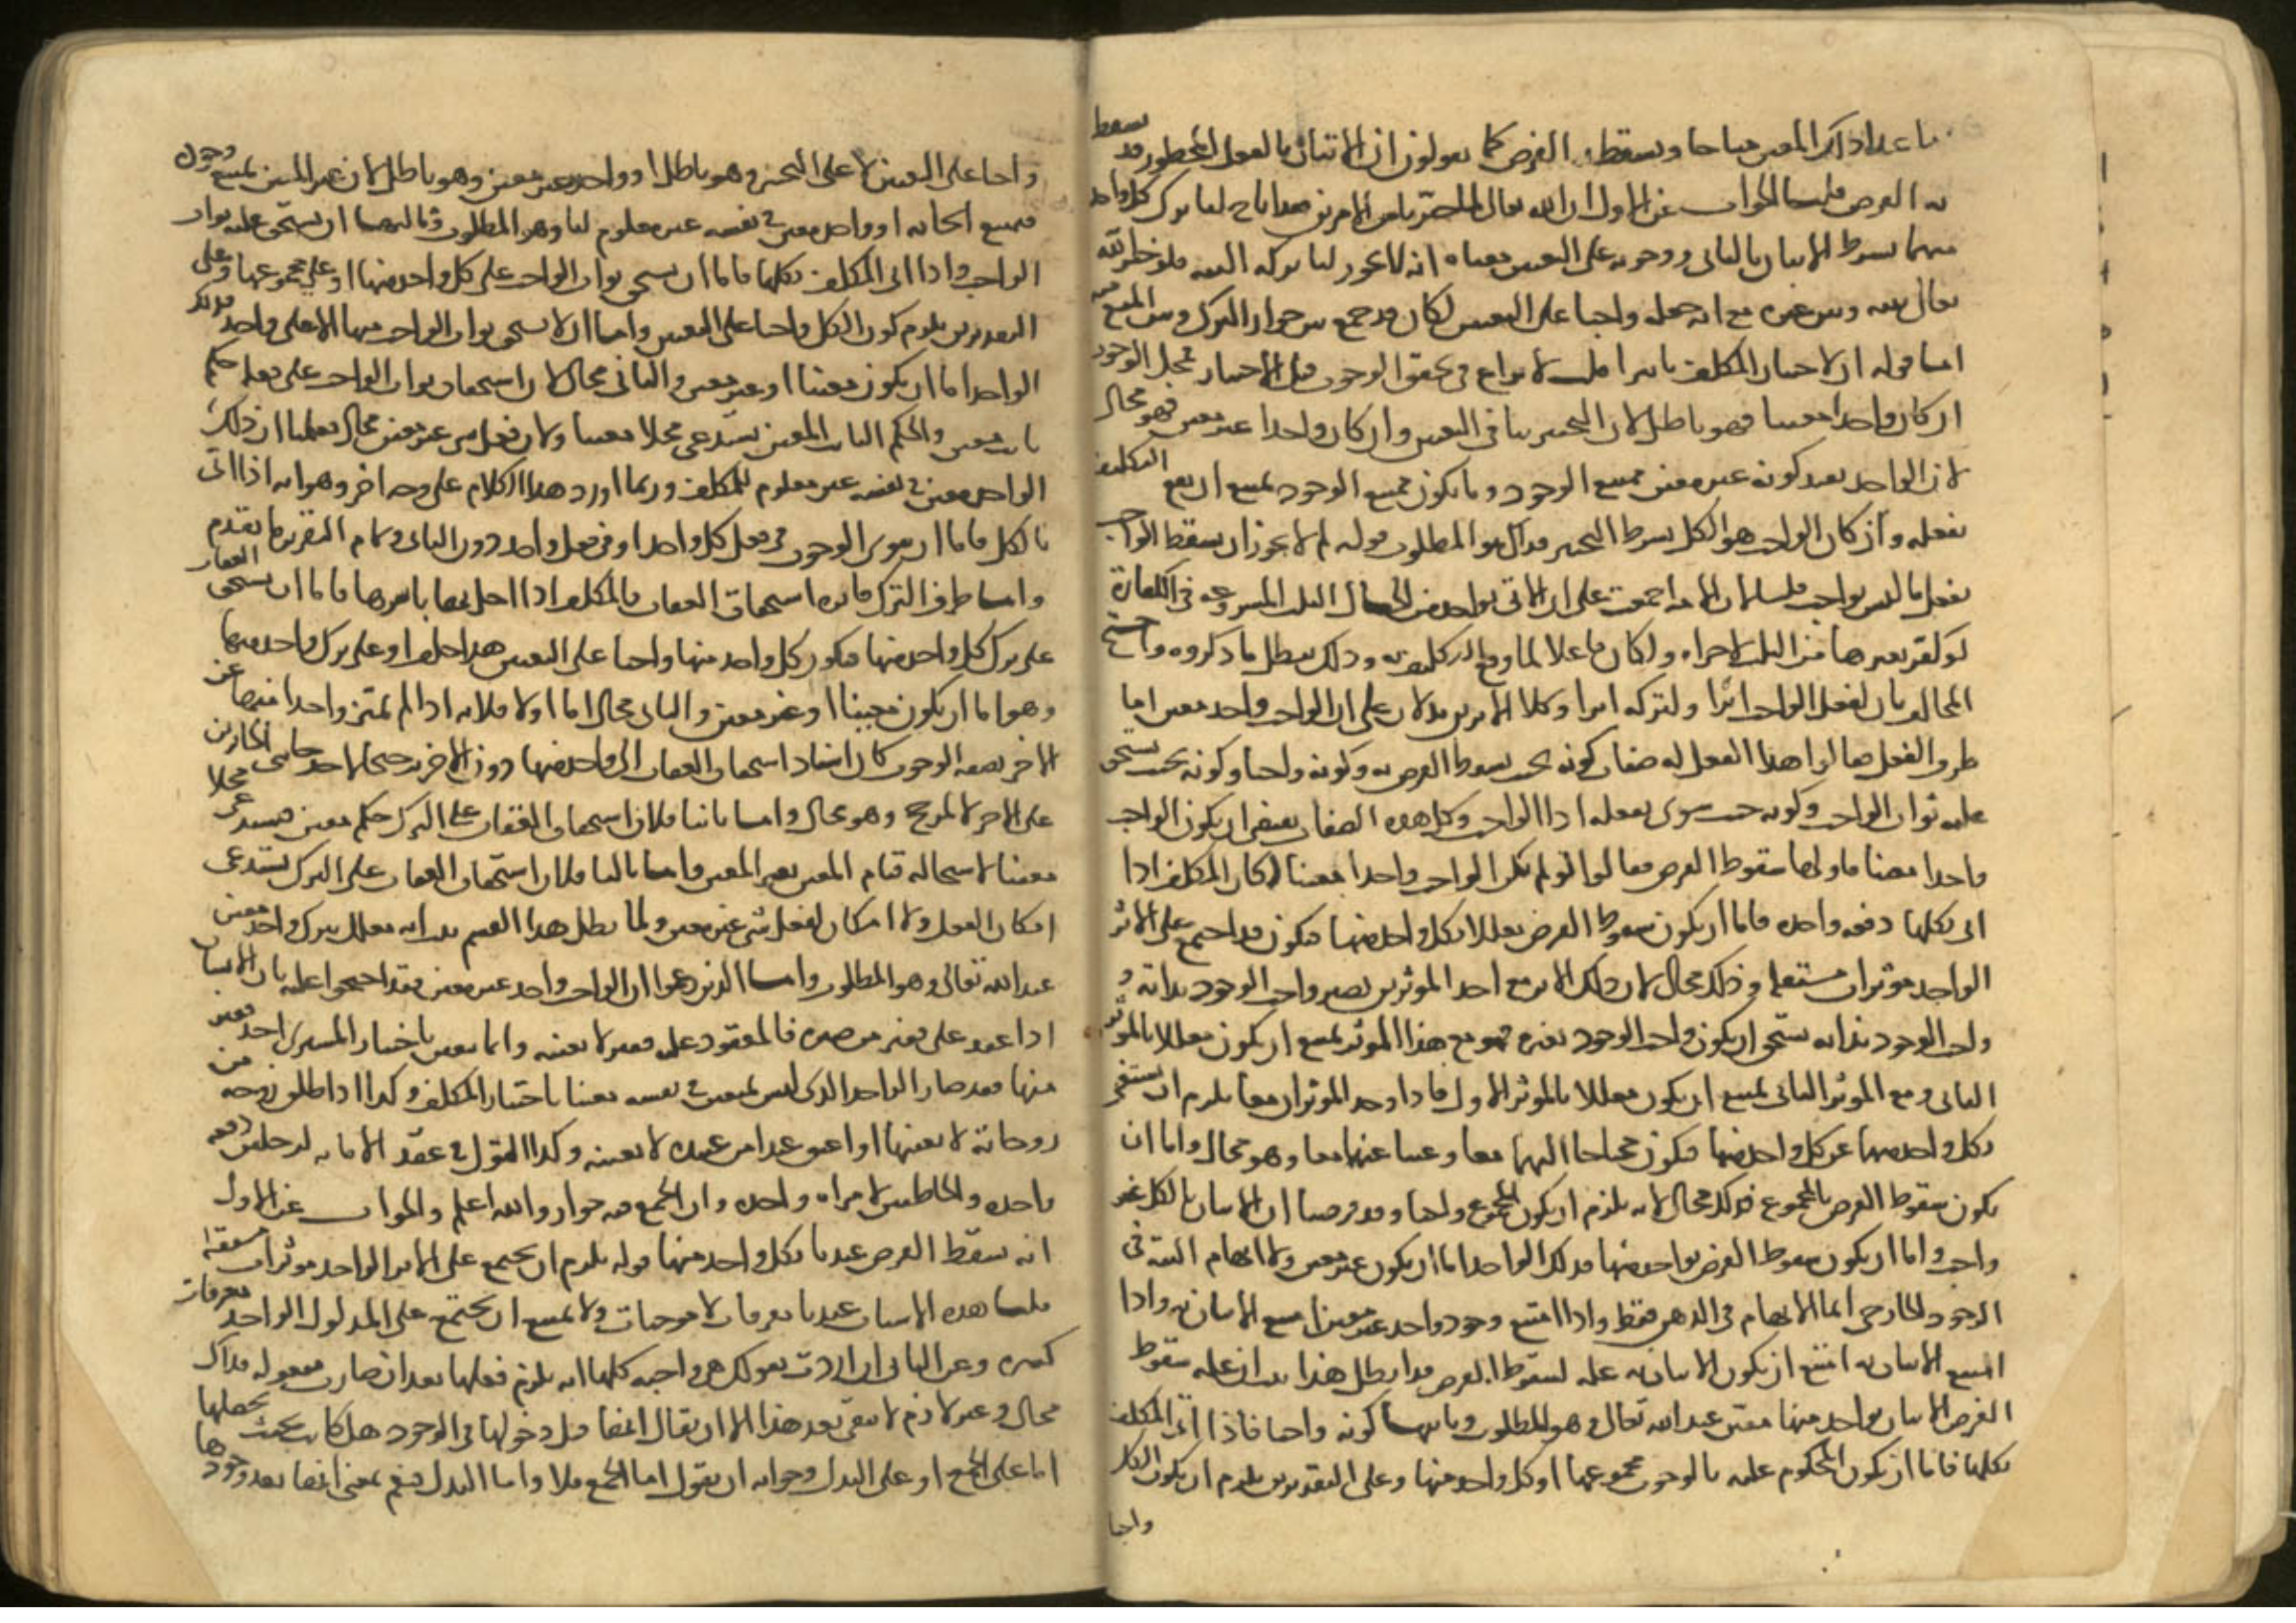 ما عدا ذلك المعين مباحا ويسقط به الفرض كما يقولون ان الاتيان بالفعل المحظور قد يسقط
به الفرض قلنا الجواب عن الاول ان الله تعالى لما خيرنا بين الامرين فقد اباح لنا ترك كل واحد
منهما بشرط الاتيان بالثاني ووجوبه على التعيين معناه انه لا يجوز لنا تركه البتة فلو خير الله
تعالى بينه وبين غيره مع انه جعله واجبا على التعيين لكان قد جمع بين جواز الترك وبين المنع منه
اما قوله ان لاختيار المكلف تاثيرا قلت لا نزاع في تحقق الوجوب قبل الاختيار فمحل الوجوب
ان كان واحدا معينا فهو باطل لان التخيير ينافي التعيين وان كان واحدا غير معين فهو محال
لان الواحد بقيد كونه غير معين ممتنع الوجود وما يكون ممتنع الوجود يمتنع ان يقع التكليف
بفعله وان كان الواجب هو الكل بشرط التخيير فذاك هو المطلوب قوله لم لا يجوز ان يسقط الواجب
بفعل ما ليس بواجب قلنا لان الامة اجمعت على ان الاتي بواحد من الخصال الثلث المشروعة في الكفارة
لو كفر بغيرها من الثلث لاجزاه ولكان فاعلا لما وقع التكليف به وذلك يبطل ما ذكروه واحتج
المخالف بان لفعل الواجب اثرا ولتركه اثرا وكلا الامرين يدلان على ان الواجب واحد معين اما
طرف الفعل فقالوا هذا الفعل له صفات كونه بحيث يسقط الفرض به وكونه واجبا وكونه بحيث يستحق
عليه ثواب الواجب وكونه حيث ينوى بفعله اداء الواجب وكل هذه الصفات يقتضي ان يكون الواجب
واحدا معينا فاولها سقوط الفرض فقالوا لو لم يكن الواجب واحدا معينا لكان المكلف اذا
اتى بكلها دفعة واحدة فاما ان يكون سقوط الفرض معللا بكل واحد منها فيكون قد اجتمع على الاثر
الواحد موثران مستقلان وذلك محال لان ذلك الاثر مع احد الموثرين يصير واجب الوجود بذاته و
واجب الوجود بذاته يستحيل ان يكون واجب الوجود بغيره فهو مع هذا الموثر يمتنع ان يكون معللا بالموثر
الثاني ومع الموثر الثاني يمتنع ان يكون معللا بالموثر الاول فاذا وجد الموثران معا يلزم ان يستغنى
بكل واحد منهما عن كل واحد منهما فيكون محتاجا اليهما معا وغنيا عنهما معا وهو محال واما ان
يكون سقوط الفرض بالمجموع فذلك محال لانه يلزم ان يكون المجموع واجبا وقد فرضنا ان الاتيان بالكل غير
واجب واما ان يكون سقوط الفرض بواحد منها فذلك الواحد اما ان يكون غير معين ولا ابهام البتة في
الوجود الخارجي انما الابهام في الذهن فقط واذا امتنع وجود واحد غير معين امتنع الاتيان به واذا
امتنع الاتيان به امتنع ان يكون الاتيان به علة لسقوط الفرض فاذا بطل هذا ثبت ان علة سقوط
الفرض الاتيان بواحد منها معين عند الله تعالى وهو المطلوب وثانيها كونه واجبا فاذا اتى المكلف
بكلها فاما ان يكون المحكوم عليه بالوجوب مجموعها او كل واحد منها وعلى التقديرين يلزم ان يكون الكل
واجبا
واجبا على التعيين لا على التخيير وهو باطل او واحد غير معين وهو باطل لان غير المعين يمتنع وجوده
فيمتنع ايجابه او واحد معين في نفسه غير معلوم لنا وهو المطلوب وثالثها ان يستحق عليه ثواب
الواجب واذا اتى المكلف بكلها فاما ان يستحق ثواب الواجب على كل واحد منها او على مجموعها وعلى
التقديرين يلزم كون الكل واجبا على التعيين واما ان لا يستحق ثواب الواجب منها الا على واحد فذلك
الواحد اما ان يكون معينا او غير معين والثاني محال لان استحقاق ثواب الواجب على فعله حكم
ثابت معين والحكم الثابت المعين يستدعي محلا معينا ولان فعل شي غير معين محال فعلمنا ان ذلك
الواحد معين في نفسه غير معلوم للمكلف وربما اورد هذا الكلام على وجه اخر وهو انه اذا اتى
بالكل فاما ان ينوي الوجوب في فعل كل واحد او في فعل واحد دون الثاني وتمام التقرير ما تقدم
واما طرف الترك فاثره استحقاق العقاب فالمكلف اذا اخل بها باسرها فاما ان يستحق العقاب
على ترك كل واحد منها فيكون كل واحد منها واجبا على التعيين هذا خلف او على ترك واحد منها
وهو اما ان يكون معينا او غير معين والثاني محال اما اولا فلانه اذا لم يتميز واحد منها عن
الاخر بصفة الوجوب كان اسناد استحقاق العقاب الى واحد منها دون الاخر ترجيحا لاحد جانبي الجائزين
على الاخر لا لمرجح وهو محال واما ثانيا فلان استحقاق العقاب على الترك حكم معين فيستدعي محلا
معينا لاستحالة قيام المعين بغير المعين واما ثالثا فلان استحقاق العقاب على الترك يستدعي
امكان الفعل ولا امكان لفعل شي غير معين ولما بطل هذا القسم ثبت انه معلل بترك واحد معين
عند الله تعالى وهو المطلوب واما الذين زعموا ان الواجب واحد غير معين فقد احتجوا عليه بان الانسان
اذا عقد على قفيز من صبرة فالمعقود عليه قفيز لا بعينه وانما يتعين باختيار المشتري احد معين
منها فقد صار الواحد الذي ليس بمتعين في نفسه معينا باختيار المكلف وكذا اذا طلق زوجة من
زوجاته لا بعينها او اعتق عبدا من عبيده لا بعينه وكذا القول في عقد الامامة لرجلين دفعة
واحدة والخاطبين لامراة واحدة وان الجمع فيه حرام والله اعلم والجواب عن الاول
انه سقط الفرض عندنا بكل واحد منها قوله يلزم ان يجتمع على الاثر الواحد موثرات مستقلة
قلنا هذه الاسباب عندنا معرفات لا موجبات ولا يمتنع ان يجتمع على المدلول الواحد معرفات
كثيرة وعن الثاني ان اردت بقولك هي واجبة كلها انه يلزم فعلها بعد ان صارت مفعولة فذاك
محال وغير لازم لا يبقى بعد هذا الا ان يقال انها قبل دخولها في الوجود هل كانت بحيث يجب تحصيلها
اما على الجمع او على البدل وجوابه ان يقول اما الجمع فلا واما البدل فنعم بمعنى انها بعد وجودها